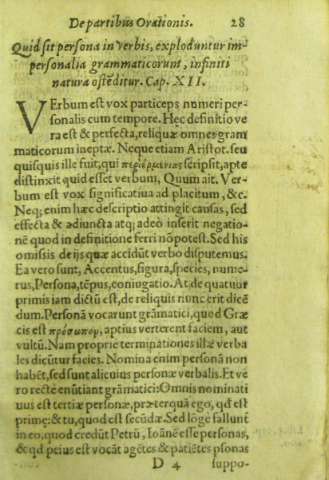 De partibus Orationis. 28
Quid sit persona in verbis, exploduntur im-
personalia grammaticorum, infiniti
natura ostẽditur. Cap. XII.
VErbum est vox particeps numeri per-
sonalis cum tempore. Hęc definitio ve
ra est & perfecta, reliquæ omnes gram
maticorum ineptæ. Neque etiam Aristot. seu
quisquis ille fuit, qui περιερμηνίας scripsit, apte
distinxit quid esset verbum, Quum ait. Ver-
bum est vox significatiua ad placitum, &c.
Neq; enim hæc descriptio attingit causas, sed
effecta & adiuncta atq; adeò inserit negatio-
nẽ quod in definitione ferri nõ potest. Sed his
omissis de ijs quæ accidũt verbo disputemus.
Ea vero sunt, Accentus, figura, species, nume-
rus, Persona, tẽpus, coniugatio. At de quatuor
primis iam dictũ est, de reliquis nunc erit dicẽ
dum. Personã vocarunt grãmatici, quod Græ
cis est πρόσωπον, aptius verterent faciem, aut
vultũ. Nam proprie terminationes illæ verba
les dicũtur facies. Nomina enim personã non
habẽt, sed sunt alicuius personæ verbalis. Et ve
ro recte enũtiant grãmatici: Omnis nominati
uus est tertiæ personæ, præterquã ego, qđ est
primę: & tu, quod est secũdæ. Sed lõge fallunt̃
in eo, quod credũt Petrũ, Ioãnẽ esse personas,
& qđ peius est vocãt agẽtes & patiẽtes psonas
D 4 suppo-